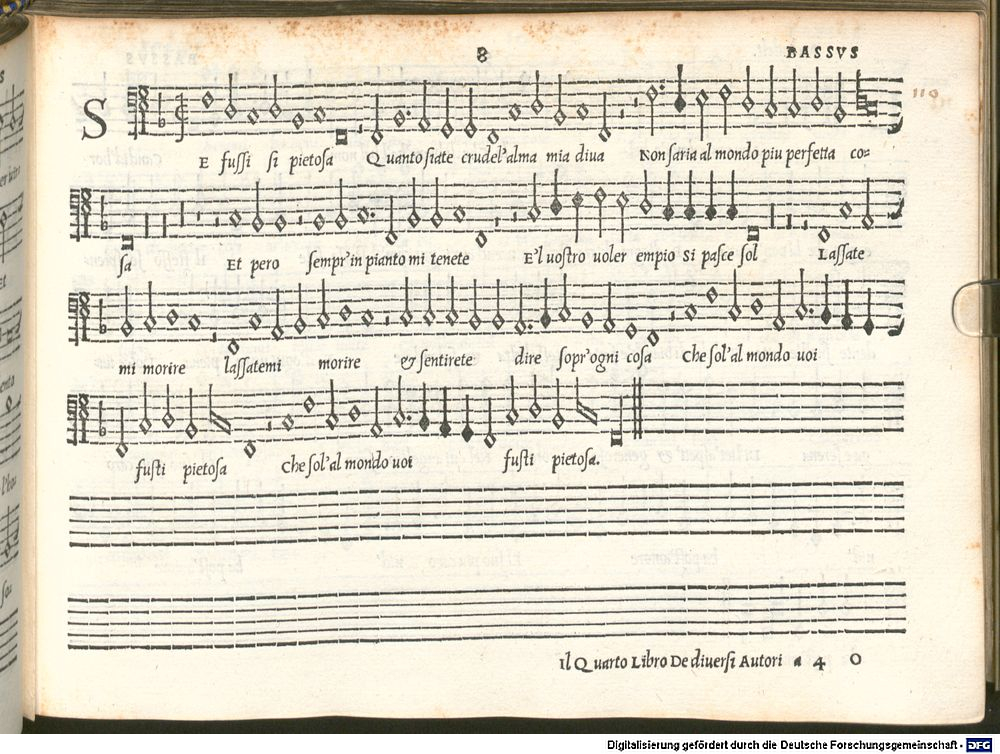 8 BASSVS
110
SE fussi si pietosa Quanto siate crudel'alma mia diua Non saria al mondo piu perfetta co-
sa Et pero sempr'in pianto mi tenete E'l uostro uoler empio si pasce sol Lassate
mi morire lassatemi morire & sentirete dire sopr'ogni cosa Che sol'al mondo uoi
fusti pietosa Che sol'al mondo uoi fusti pietosa.
Il Quarto Libro De diuersi Autori a 4 O
Digitalisierung gefördert durch die Deutsche Forschungsgemeinschaft - DFG